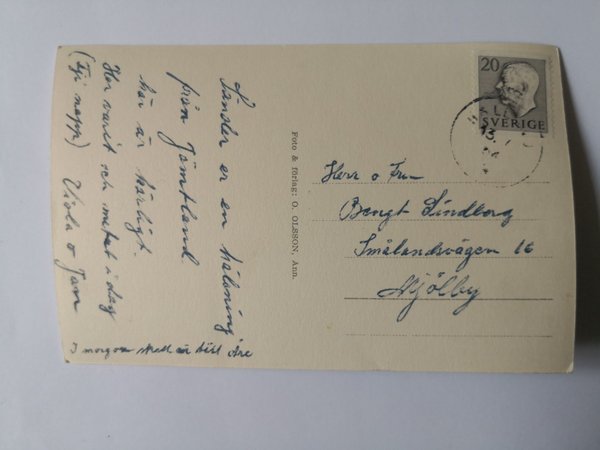 Sänder er en hälsning
från Jämtland
här är härligt.
Har varit och metat i dag
(Ej napp) Viola o Jan
I morgon skall vi till Åre
Foto & förlag: O. OLSSON, Ann.
20
SVERIGE
13
Herr o Fru
Bengt Lindborg
Smålandsvägen 16
Mjölby